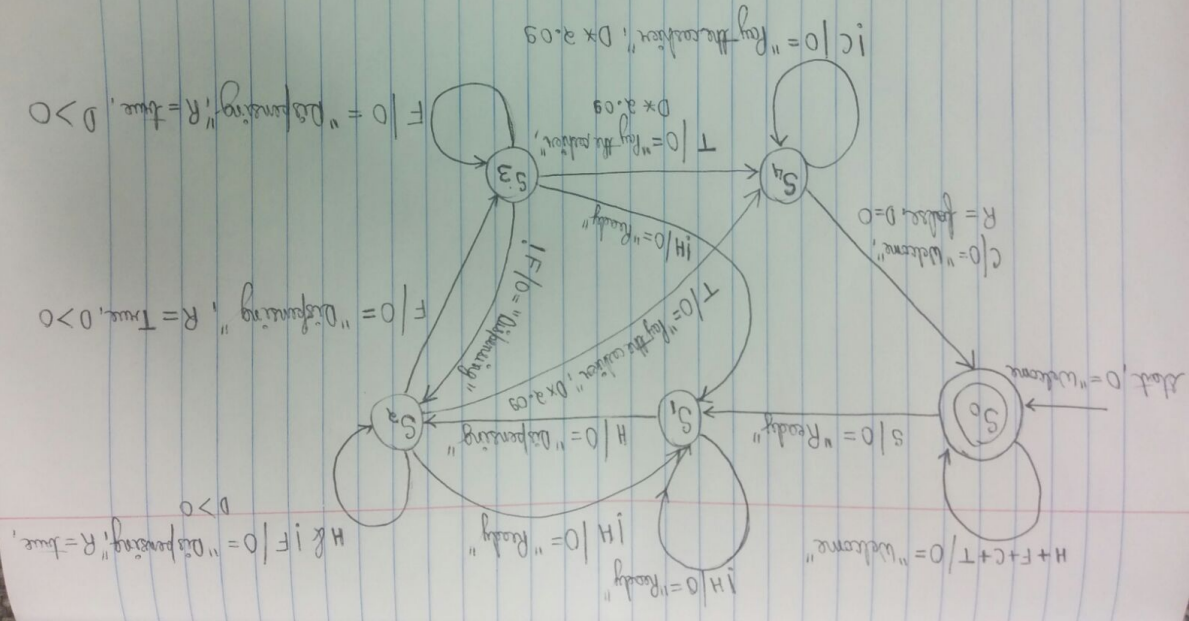 !H/O="Ready"
H+F+C+T/O="Welcome"
!H/O="Ready"
H&!F/O="Dispensing", R=true,
D>0
start, O="Welcome
S0
S/O="Ready"
S1
H/O="Dispensing"
S2
T/O="Pay the cashier", D*2.09
!F/O="Dispensing"
F/O="Dispensing", R=True, D>0
C/O="Welcome",
R=false, D=0
!H/O="Ready"
S4
S3
T/O="Pay the cashier",
D*2.09
F/O="Dispensing", R=true, D>0
!C/O="Pay the cashier", D*2.09